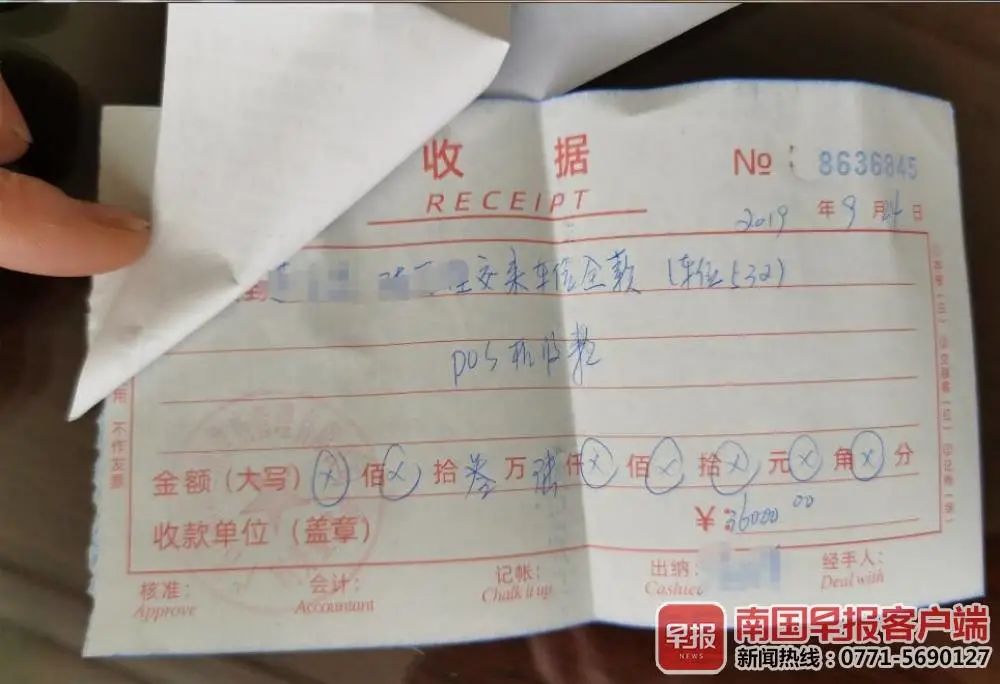 收 据
RECEIPT
No: 8636845
2019 年 9 月 24 日
到 交来车位全款(车位532)
POS机收款
用 不作发票
金额(大写)ⓧ佰ⓧ拾叁万陆仟ⓧ佰ⓧ拾ⓧ元ⓧ角ⓧ分
收款单位(盖章)
¥:36000 00
核准: 会计: 记帐: 出纳: 经手人:
Approve Accountant Chalk it up Cashier Deal with
早报
NEWS
南国早报客户端
新闻热线:0771-5690127